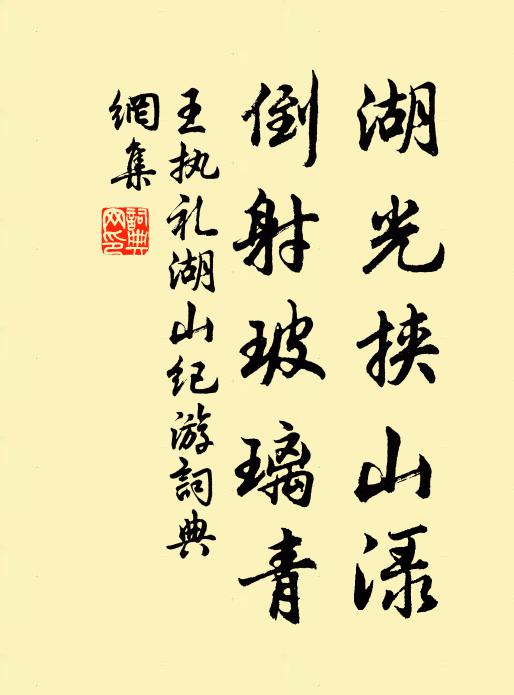 湖光挟山渌
倒射玻璃青
王执礼湖山纪游詞典
網集
詞典
网印